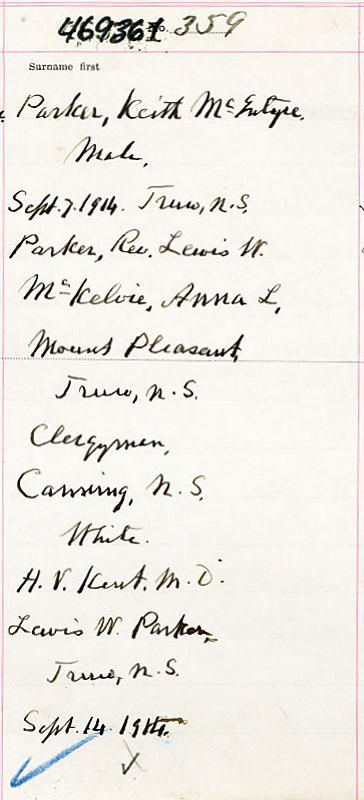 469361 No. 359
Surname first
Parker, Keith McIntyre.
Male,
Sept. 7. 1914. Truro, N.S.
Parker, Rev. Lewis W.
McKelvie, Anna L,
Mount Pleasant,
Truro, N.S.
Clergyman,
Canning, N.S,
White.
H. V. Kent. M.D.
Lewis W. Parker,
Truro, N.S.
Sept. 14. 1914.